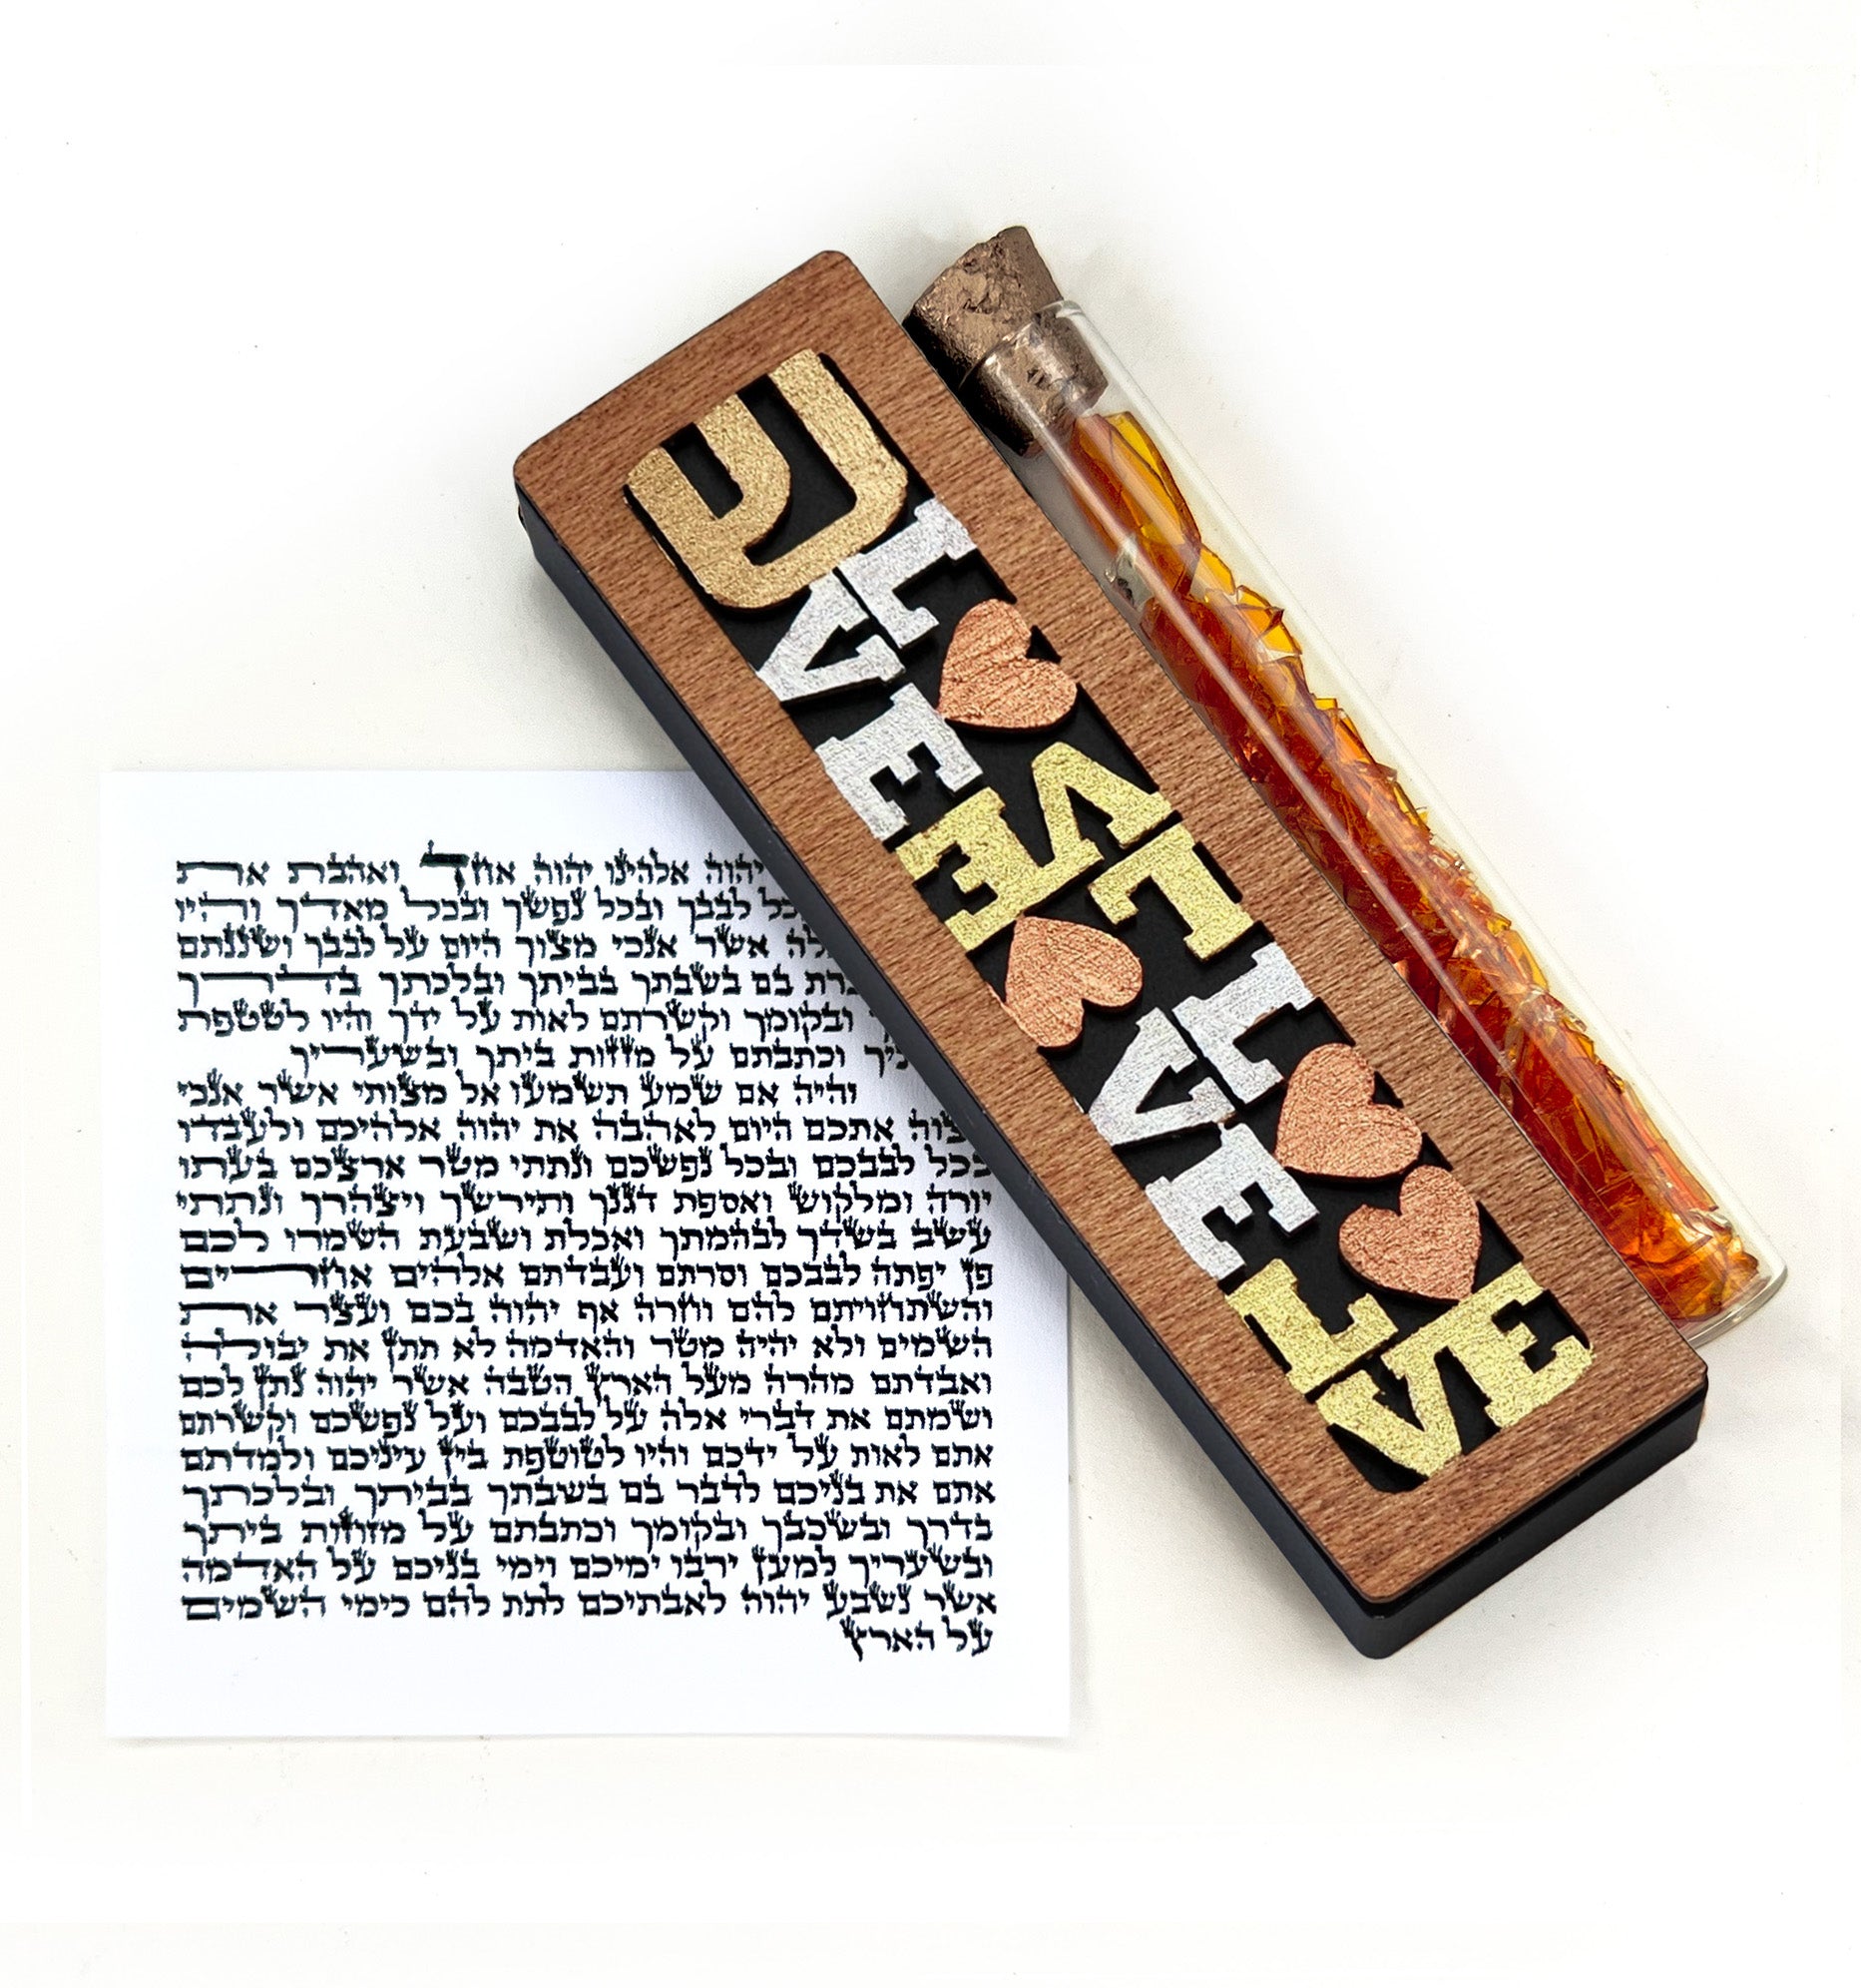 יהוה אלהינו יהוה אחד ואהבת את
לבבך ובכל נפשך ובכל מאדך והיו
אשר אנכי מצוך היום על לבבך ושננתם
בם בשבתך בביתך ובלכתך בדרך
ובקומך וקשרתם לאות על ידך והיו לטטפת
וכתבתם על מזזות ביתך ובשעריך
והיה אם שמע תשמעו אל מצותי אשר אנכי
אתכם היום לאהבה את יהוה אלהיכם ולעבדו
בכל לבבכם ובכל נפשכם ונתתי מטר ארצכם בעתו
יורה ומלקוש ואספת דגנך ותירשך ויצהרך ונתתי
עשב בשדך לבהמתך ואכלת ושבעת השמרו לכם
פן יפתה לבבכם וסרתם ועבדתם אלהים אחרים
והשתחויתם להם וחרה אף יהוה בכם ועצר את
השמים ולא יהיה מטר והאדמה לא תתן את יבולה
ואבדתם מהרה מעל הארץ הטבה אשר יהוה נתן לכם
ושמתם את דברי אלה על לבבכם ועל נפשכם וקשרתם
אתם לאות על ידכם והיו לטוטפת בין עיניכם ולמדתם
אתם את בניכם לדבר בם בשבתך בביתך ובלכתך
בדרך ובשכבך ובקומך וכתבתם על מזוזות ביתך
ובשעריך למען ירבו ימיכם וימי בניכם על האדמה
אשר נשבע יהוה לאבתיכם לתת להם כימי השמים
על הארץ
ש
L♥
VE
L♥
VE
L♥
VE
L♥
VE